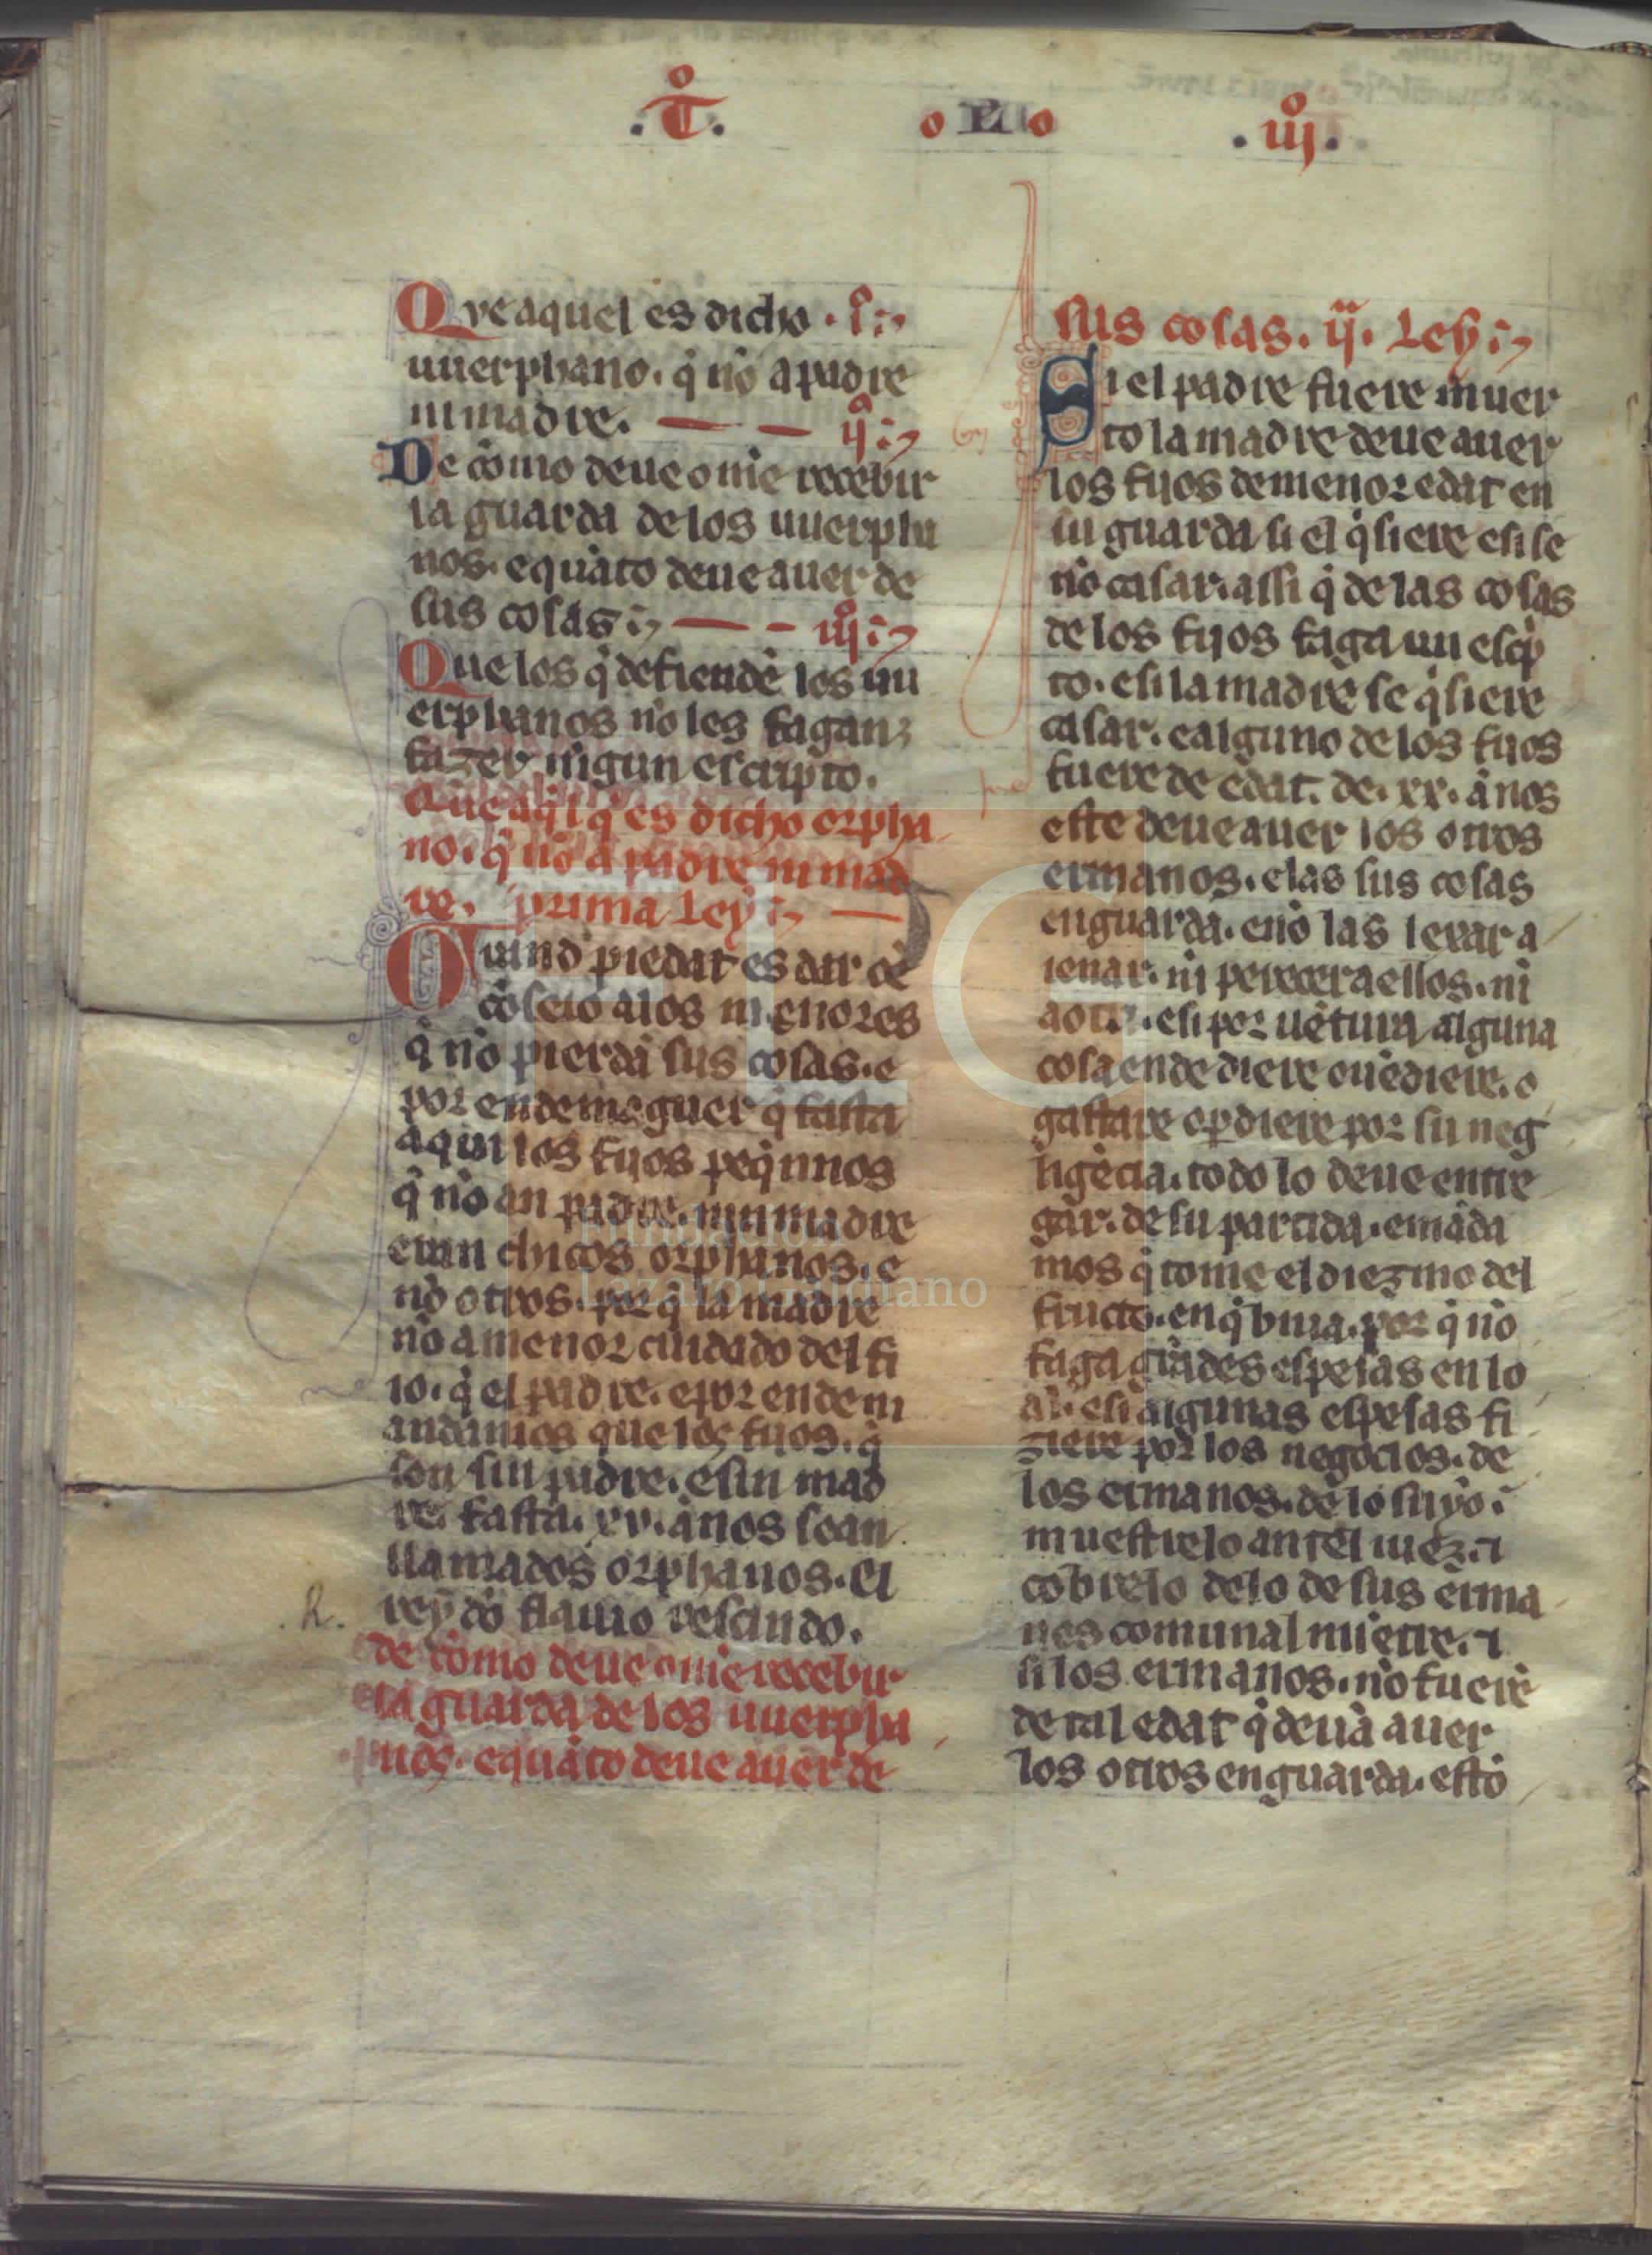 .T̊. o L o .iij̊.
Que aquel es dicho . i̊.
uuerphano. q̃ nõ a padre
ni madre. — — ij̊.
De cõmo deue omẽ recebir
la guarda de los uuerpha
nos. e quãto deue auer de
sus cosas. — - iij̊.
Que los q̃ defiendẽ los uu
erphanos nõ les fagan
fazer nigun escripto.
Que aq̃l q̃ es dicho orpha
no. q̃ nõ a padre ni mad
re. prima Ley.
piedat es dar cõ
cõseio alos menores
q̃ nõ pierdã sus cosas. e
por ende maguer q̃ fasta
aqui los fijos peq̃nnos
q̃ nõ an padre. nin madre
eran dichos orphanos. e
nõ otros. por q̃ la madre
nõ a menor cuidado del fi
io. q̃ el padre. e por ende m
andamos que los fijos. q̃
son sin padre. e sin mad
re. fasta. xv. ãnos sean
llamados orphanos. El
rey dõ flauio rescindo.
.R.
de cõmo deue omẽ recebir
la guarda de los uuerpha
nos. e quãto deue auer de
sus cosas. ij̃. Ley.
Si el padre fuere muer
to la madre deue auer
los fijos de menor edat en
su guarda si el q̃siere e si se
nõ casar. assi q̃ de las cosas
de los fijos faga un escp̃
to. e si la madre se q̃siere
casar. e alguno de los fijos
fuere de edat. de. xx. ãnos
este deue auer los otros
ermanos. e las sus cosas
en guarda. e nõ las lexar a
ienar. ni perecer a ellos. ni
a otri. e si por uẽtura alguna
cosa ende diere o uẽdiere. o
gastare o p̃diere por su neg
ligẽcia. todo lo deue entre
gar. de su partida. e mãda
mos q̃ tome el diezmo del
fructo. en q̃ biua. por q̃ nõ
faga grãdes espesas en lo
al. e si algunas espesas fi
ziere por los negocios. de
los ermanos. de lo suyo.
muestrelo antel iuez. ⁊
cobrelo delo de sus erma
nos comunal miẽtre. ⁊
si los ermanos. nõ fuerẽ
de tal edat q̃ deuã auer
los otros en guarda. estõ
Fundación
Lázaro Galdiano